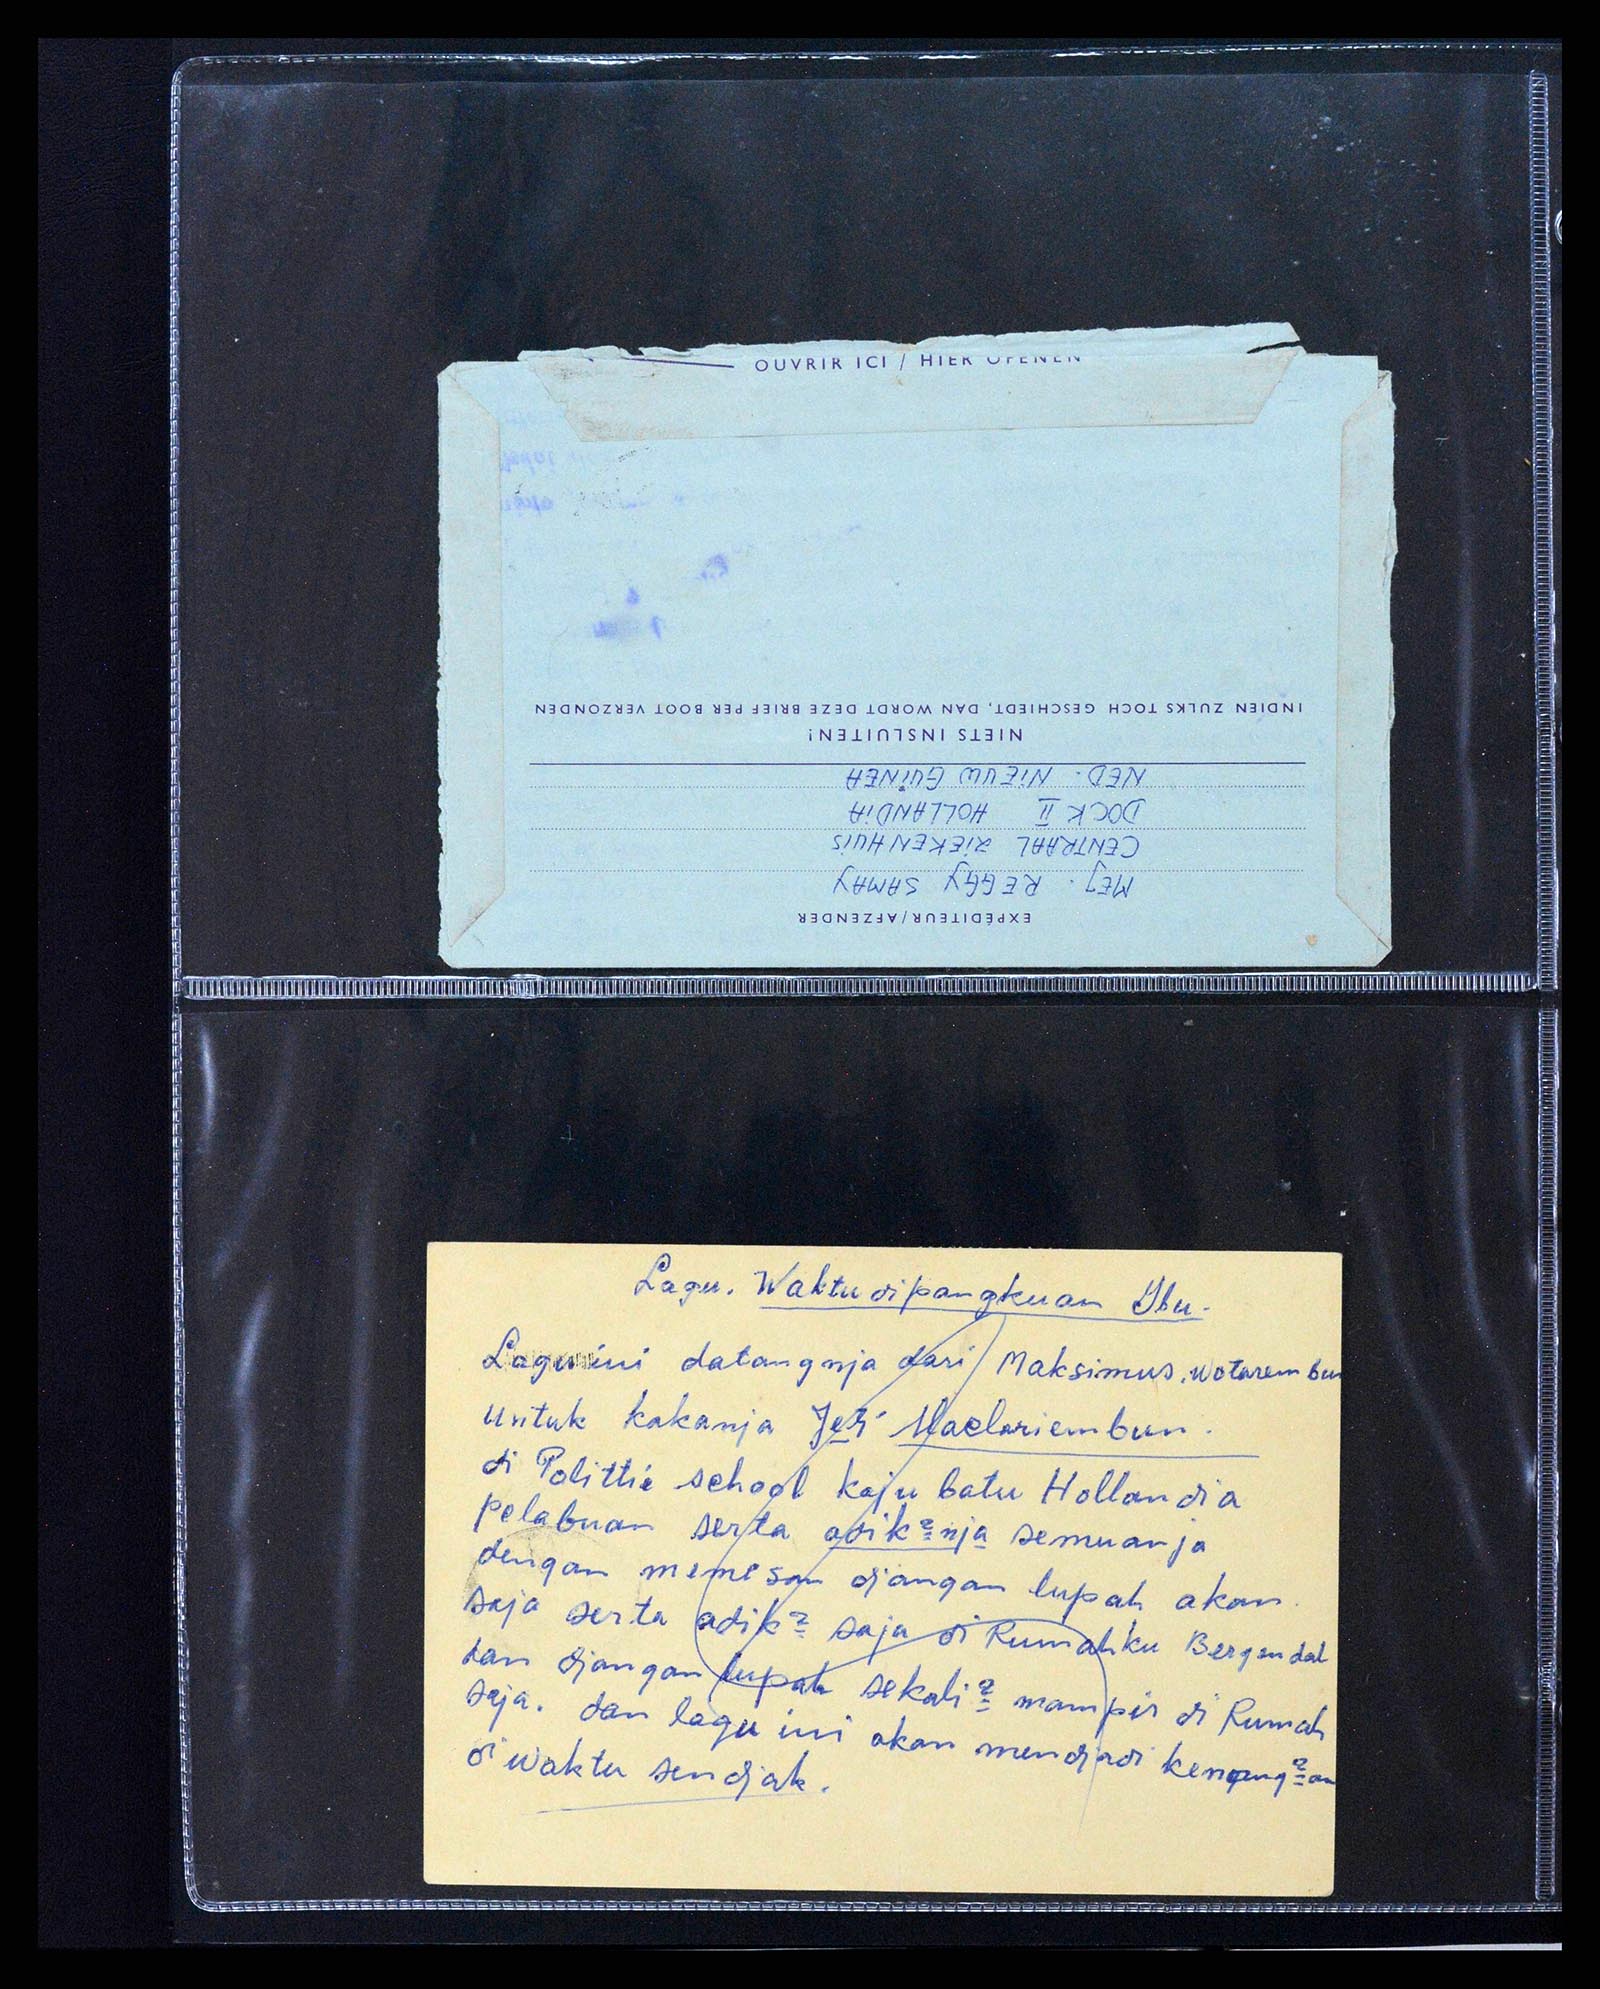 OUVRIR ICI / HIER OPENEN
EXPÉDITEUR/AFZENDER
MEJ. REGGY SAMAY
CENTRAAL ZIEKENHUIS
DOCK II HOLLANDIA
NED. NIEUW GUINEA
NIETS INSLUITEN!
INDIEN ZULKS TOCH GESCHIEDT, DAN WORDT DEZE BRIEF PER BOOT VERZONDEN
Lagu. Waktu dipangkuan Ibu.
Lagu ini datangnja dari Maksimus. Wotarembun
untuk kakanja
di Polittie school kaju batu Hollandia
pelabuan serta adik2nja semuanja
dengan memesan djangan lupah akan
saja serta adik2 saja di Rumahku Bergendal
dan djangan lupah sekali2 mampir di Rumah
saja. dan lagu ini akan mendjadi
di waktu sendjak.